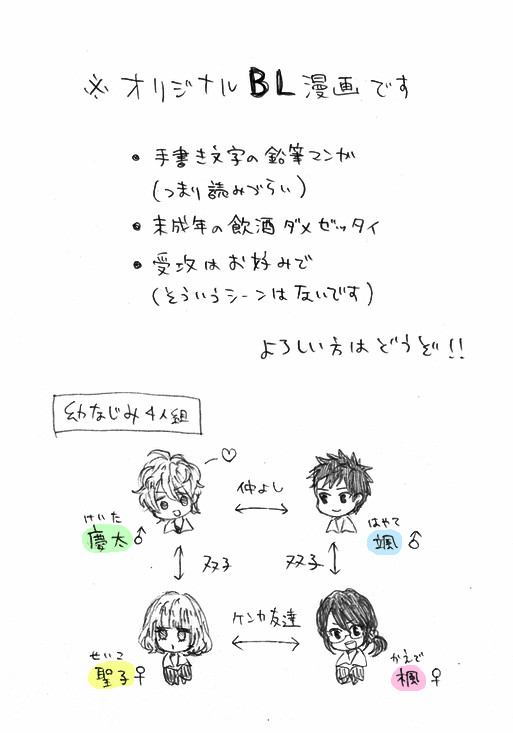 ※オリジナルBL漫画です
• 手書き文字の鉛筆マンガ
(つまり読みづらい)
• 未成年の飲酒ダメゼッタイ
• 受攻はお好みで
(そういうシーンはないです)
よろしい方はどうぞ!!
幼なじみ4人組
♡
仲よし
けいた
慶太♂
はやて
颯♂
双子
双子
ケンカ友達
せいこ
聖子♀
かえで
楓♀